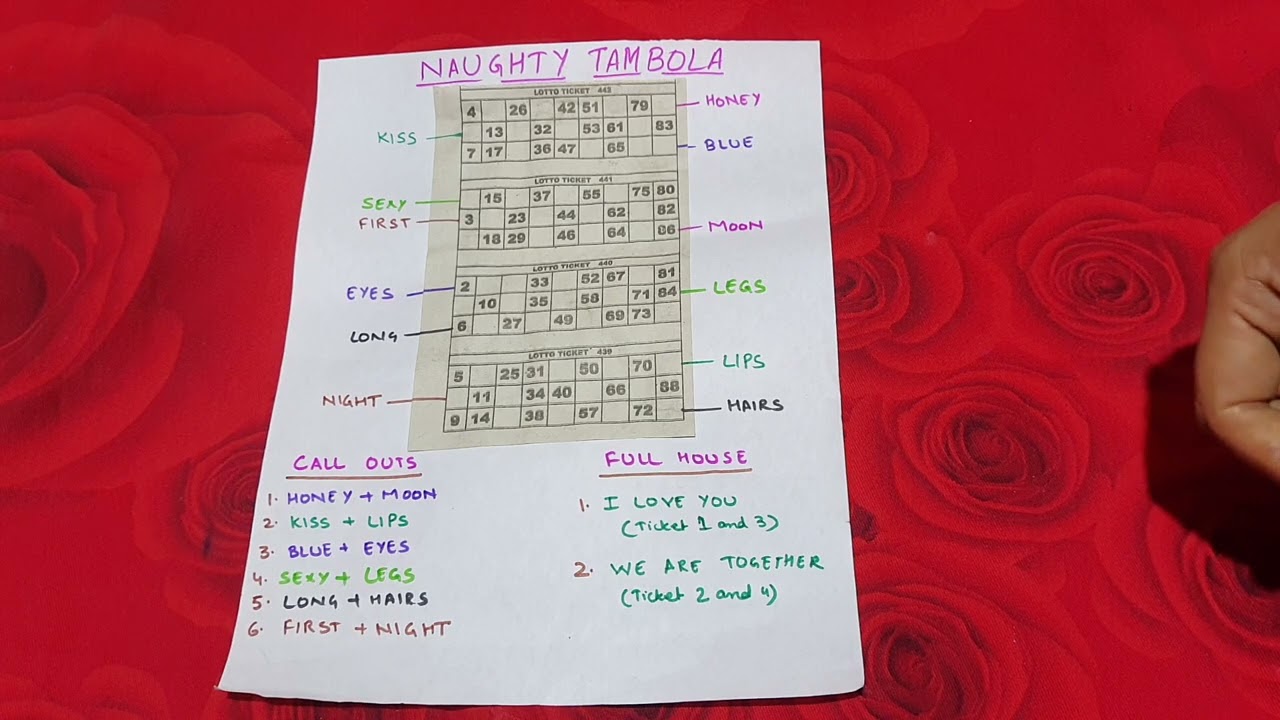 NAUGHTY TAMBOLA
LOTTO TICKET 443
4 26 42 51 79
HONEY
KISS
13 32 53 61 83
7 17 36 47 65
BLUE
LOTTO TICKET 441
SEXY
15 37 55 75 80
FIRST
3 23 44 62 82
18 29 46 64 86
MOON
LOTTO TICKET 440
EYES
2 33 52 67 81
10 35 58 71 84
LEGS
LONG
6 27 49 69 73
LOTTO TICKET 439
5 25 31 50 70
LIPS
NIGHT
11 34 40 66 88
9 14 38 57 72
HAIRS
CALL OUTS
1. HONEY + MOON
2. KISS + LIPS
3. BLUE + EYES
4. SEXY + LEGS
5. LONG + HAIRS
6. FIRST + NIGHT
FULL HOUSE
1. I LOVE YOU
(Ticket 1 and 3)
2. WE ARE TOGETHER
(Ticket 2 and 4)